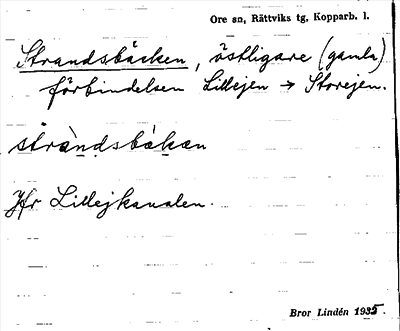 Ore sn, Rättviks tg, Kopparb. l.
Strandsbäcken, östligare (gamla)
förbindelsen Lillejen → Storejen.
stràndsbàkan
Jfr Lillejkanalen.
Bror Lindén 1935.